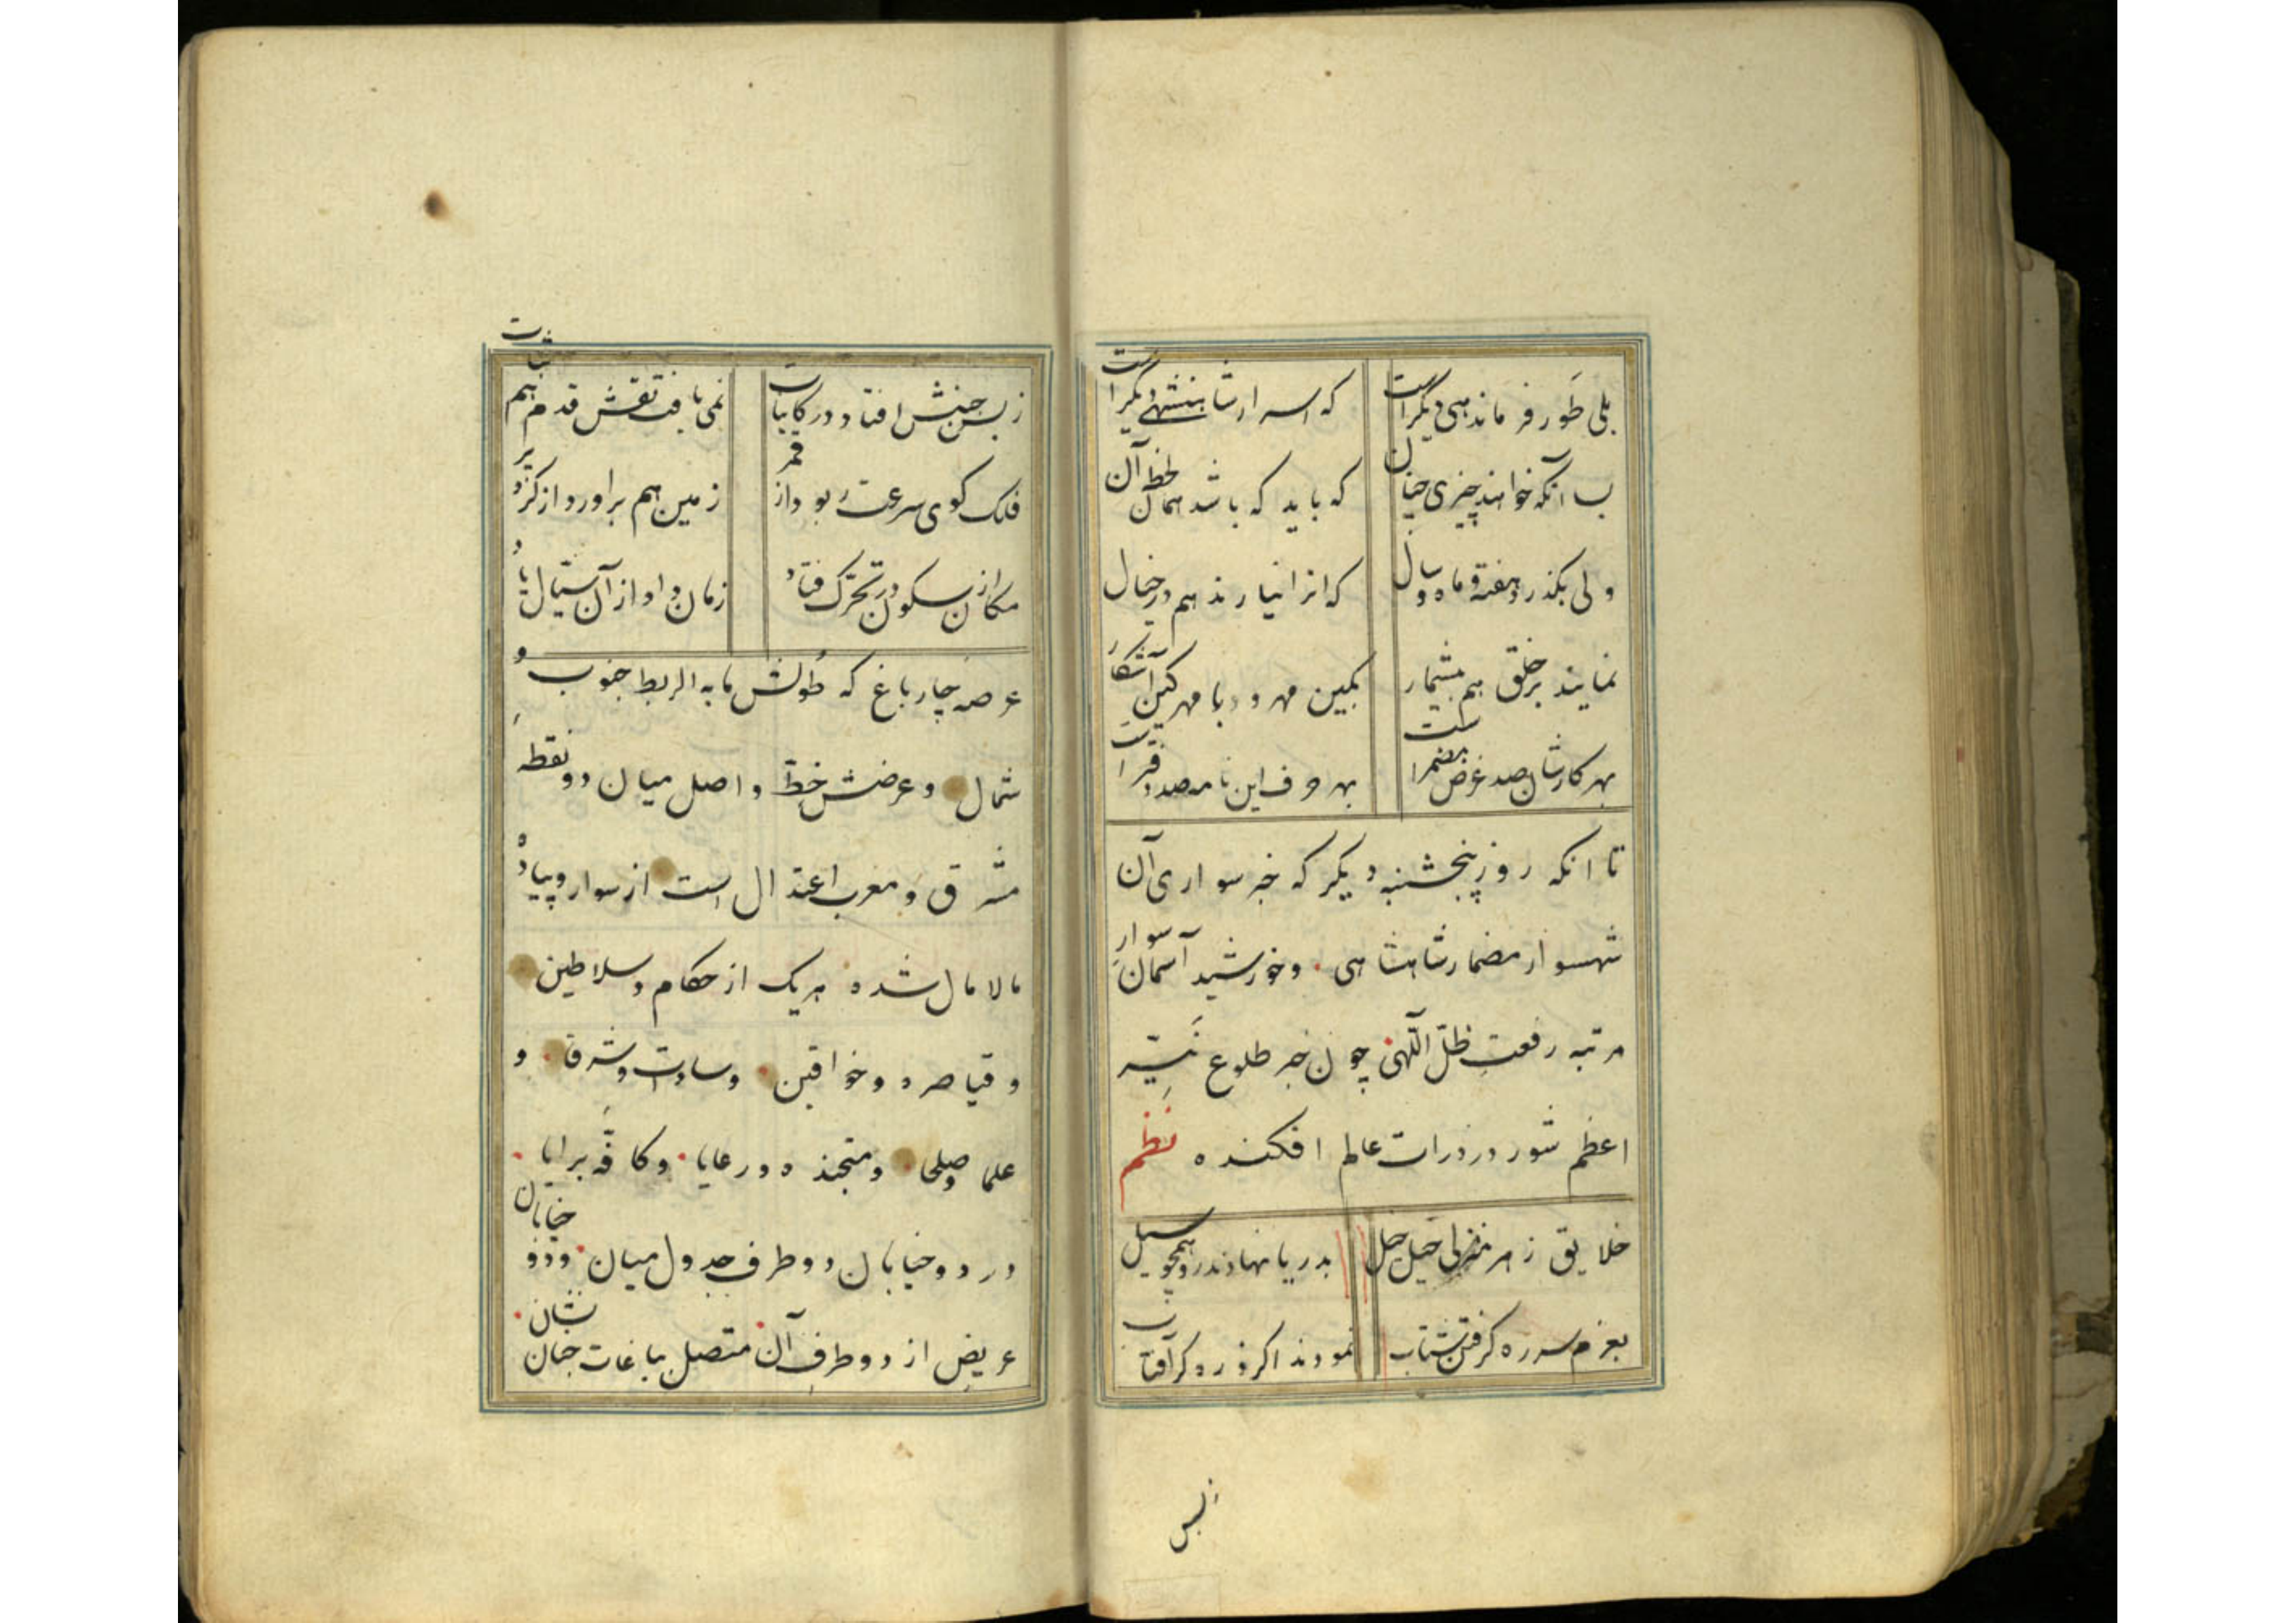 بلی طَور فرماندهی دیگر است
که اسرار شاهنشهی دیگر است
بسا آنکه خواهند چیزی چنان
که باید که باشد همان لحظ آن
ولی بگذرد هفته و ماه و سال
که انرا نیارند هم در خیال
نمایند بر خلق هم بیشمار
بکین مهر و با مهر کین آشکار
بهر کارشان صد غرض مضمر است
بهر حرف این نامه صد دفتر است
تا انکه روز پنجشنبه دیکر که خبر سواری آن
شهسوار مضمار شاهنشاهی و خورشید آسمان سوار
مرتبه رفعت ظلّ آللهی چون خبر طلوع نیّر
اعظم شور در ذرات عالم افکنده نظم
خلایق ز هر منزلی خیل خیل
بدریا نهادند رو همچو سیل
بعزم سر ره گرفتن شتاب
نمودند اکر ذره کر آفتاب
زبس
زبس جنبش افتاد در کاینات
نمی یافت نقش قدم هم ثبات
فلک کوی سرعت ربود از قمر
زمین هم براورد از کرد پر
مکان از سکون در تحرّک فتاد
زمان داد از آن سیّال یاد
عرصه چارباغ که طولش مابه الربط جنوب و
شمال و عرضش خطّ واصل میان دو نقطه
مشرق و مغرب اعتدال است از سوار و پیاده
مالامال شده هریک از حکام و سلاطین
و قیاصره و خواقین و سادات و شرفا و
علما و صلحا و متجنده و رعایا و کافّه برایا
در دو خیابان دو طرف جدول میان و دو خیابان
عریض از دو طرف آن متصل بباغات جنان نشان